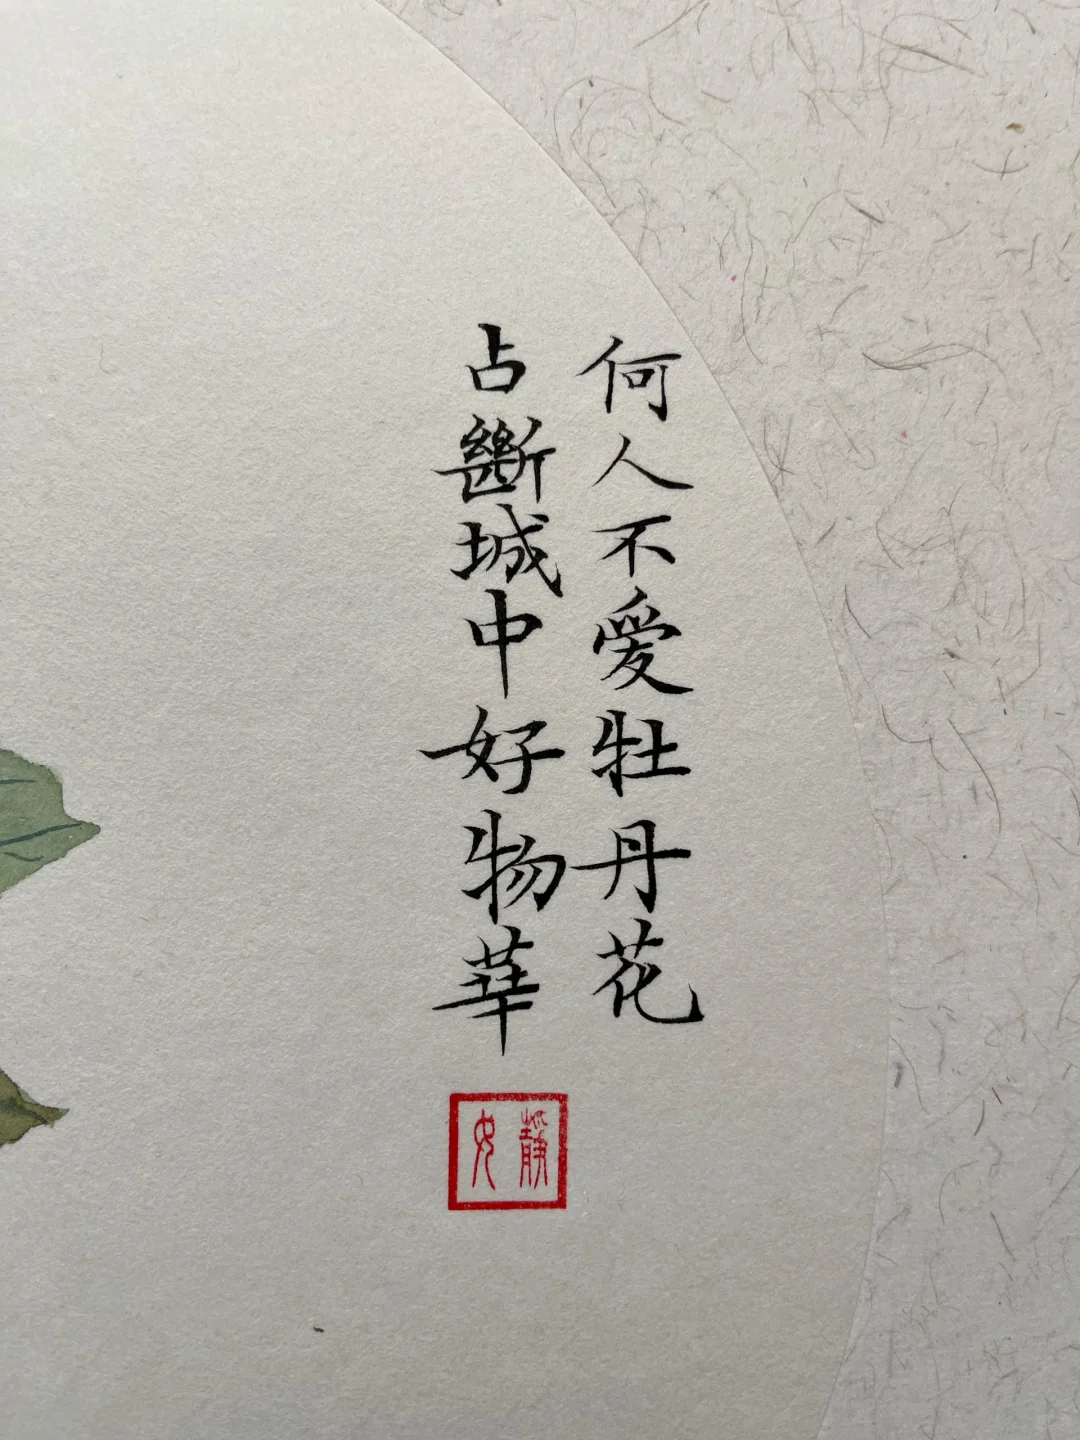 何人不愛牡丹花
占斷城中好物華
靜女